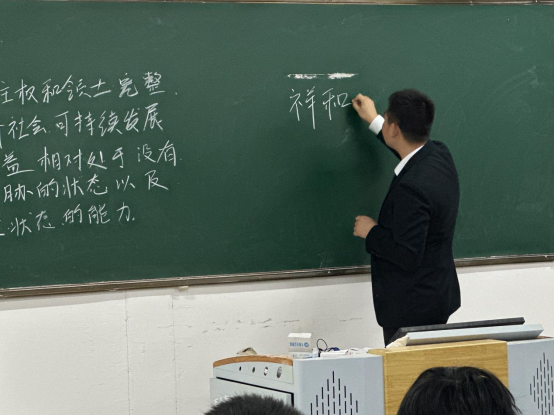 主权和领土完整.
社会可持续发展
益相对处于没有
胁的状态以及
状态的能力.
祥和